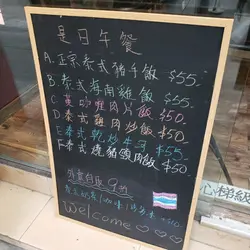 是日午餐
A.正宗泰式豬手飯 $55.
B.泰式海南雞飯 $55.
C.黃咖喱肉片飯 $50.
D.泰式雞肉炒飯 $50.
E.泰式乾炒牛河 $55.
F.泰式燒豬頸肉飯 $50
外賣自取 9折
Welcome
心梯級